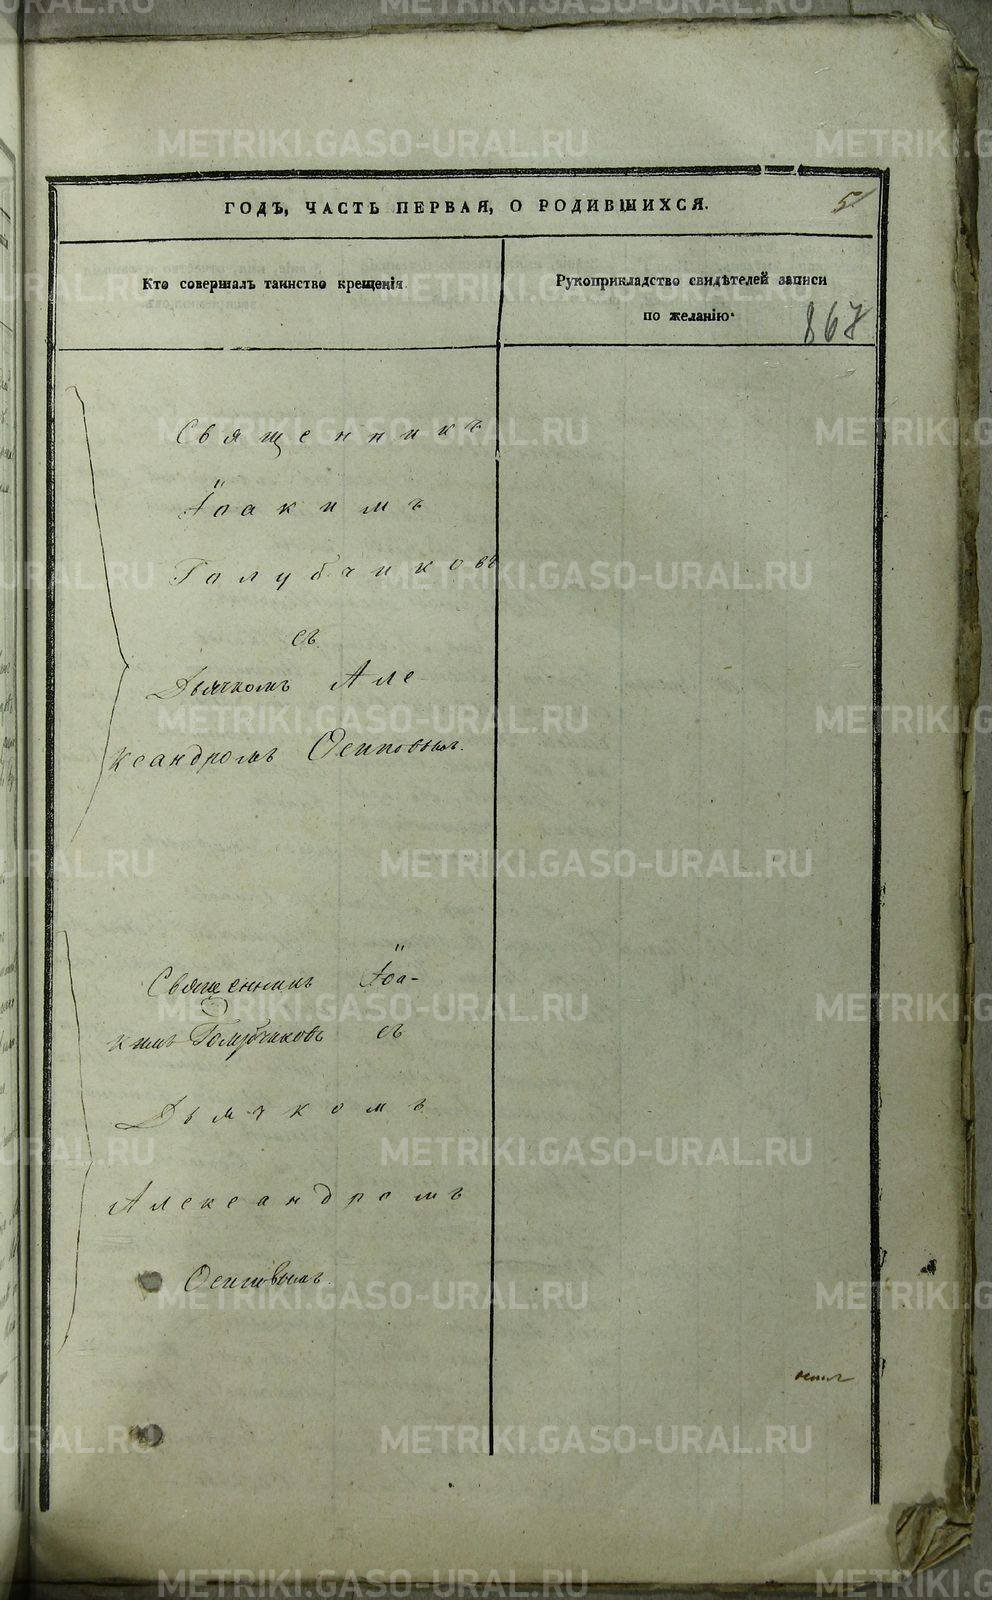 ГОДЪ, ЧАСТЬ ПЕРВАЯ, О РОДИВШИХСЯ.
5
Кто совершалъ таинство крещенія.
Рукоприкладство свидѣтелей записи
по желанію.
867
Священникъ
Іоакимъ
Голубчиковъ
съ
Дьячкомъ Але-
ксандромъ Осиповым.
Священникъ Іоа-
кимъ Голубчиковъ съ
Дьячкомъ
Александромъ
Осиповымъ.
METRIKI.GASO-URAL.RU